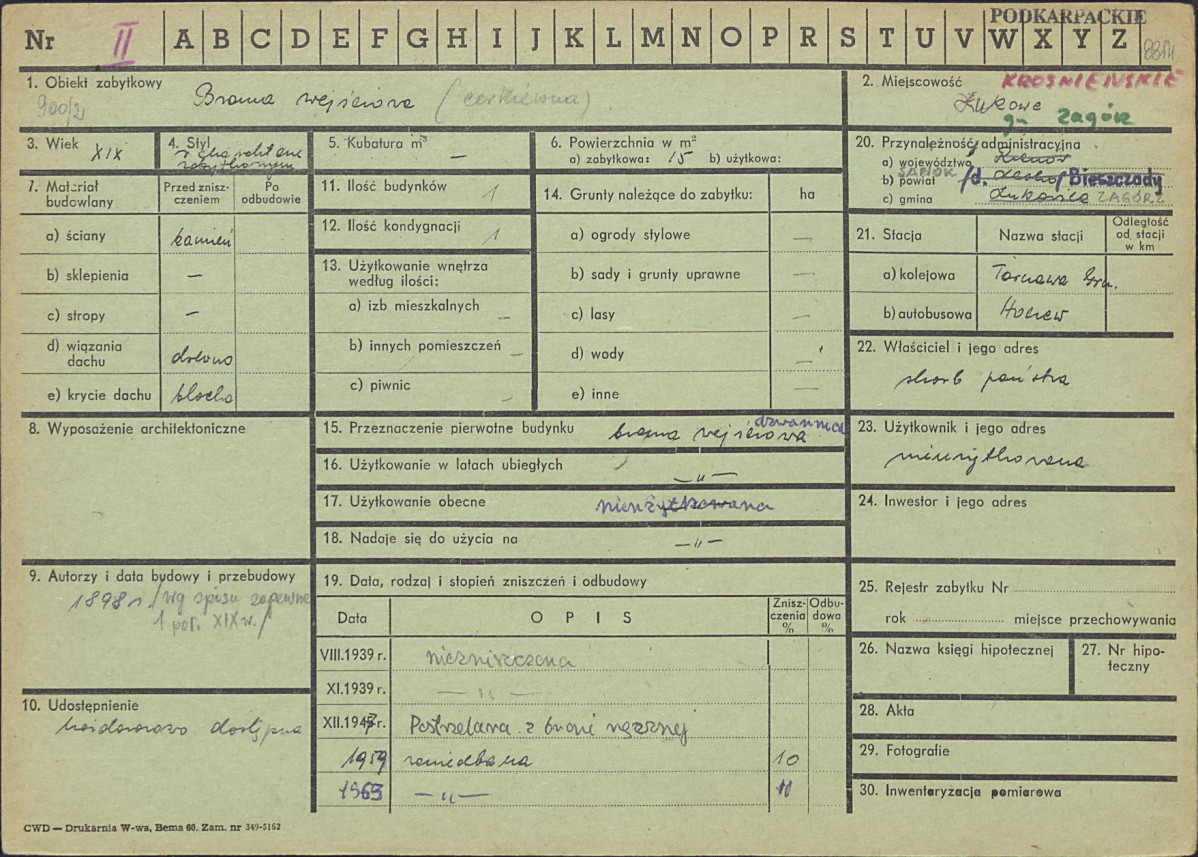 PODKARPACKIE
Nr II A B C D E F G H I J K L M N O P R S T U V W X Y Z
1. Obiekt zabytkowy
900/2 Brama wejściowa (cerkiewna)
2. Miejscowość KROŚNIEŃSKIE
Łukowe
gm Zagórz
3. Wiek XIX
4. Styl
5. Kubatura m³ —
6. Powierzchnia w m²
a) zabytkowa: 15 b) użytkowa:
20. Przynależność administracyjna
a) województwo
SANOK
b) powiat /d. Lesko/ Bieszczady
c) gmina Łukowica ZAGÓRZ
7. Materiał budowlany
Przed zniszczeniem
Po odbudowie
a) ściany kamień
b) sklepienia —
c) stropy —
d) wiązania dachu drewno
e) krycie dachu blacha
11. Ilość budynków 1
12. Ilość kondygnacji 1
13. Użytkowanie wnętrza
według ilości:
a) izb mieszkalnych —
b) innych pomieszczeń —
c) piwnic —
14. Grunty należące do zabytku: ha
a) ogrody stylowe —
b) sady i grunty uprawne —
c) lasy —
d) wody —
e) inne —
21. Stacja
Nazwa stacji
Odległość
od stacji
w km
a) kolejowa Tarnawa Grn.
b) autobusowa Hoczew
22. Właściciel i jego adres
skarb państwa
8. Wyposażenie architektoniczne
15. Przeznaczenie pierwotne budynku brama wejściowa dzwonnica
16. Użytkowanie w latach ubiegłych — „ —
17. Użytkowanie obecne nieużytkowana
18. Nadaje się do użycia na — „ —
23. Użytkownik i jego adres
nieużytkowana
24. Inwestor i jego adres
9. Autorzy i data budowy i przebudowy
1898 r. /wg spisu zapewne
1 poł. XIX w./
19. Data, rodzaj i stopień zniszczeń i odbudowy
Data
O P I S
Zniszczenia %
Odbudowa %
VIII.1939 r. niezniszczona
XI.1939 r. — „ —
XII.1947 r. Postrzelana z broni ręcznej
1959 zaniedbana 10
1963 — „ — 11
25. Rejestr zabytku Nr
rok miejsce przechowywania
26. Nazwa księgi hipotecznej
27. Nr hipoteczny
10. Udostępnienie
dostępna
28. Akta
29. Fotografie
30. Inwentaryzacja pomiarowa
CWD — Drukarnia W-wa, Bema 60. Zam. nr 349-5162